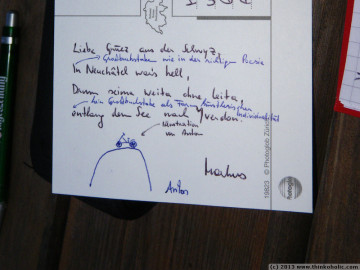 Liebe Grüez aus der Schwyz,
Großbuchstabe wie in der richtigen Poesie
In Neuchâtel wars hell,
Dann seima weita ohne Leita
kein Großbuchstabe als Form künstlerischer Individualität
entlang dem See nach Yverdon.
Illustration
von Anton
Markus
Anton
19823 © Photoglob Zürich
photoglob
(c) 2013 www.thinkoholic.com